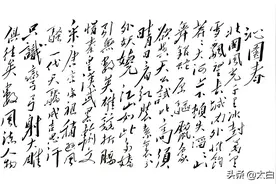 沁园春
北国风光千里冰封万里
雪飘望长城内外惟余
莽莽大河上下顿失滔滔山
舞银蛇原驰蜡象
欲与天公试比高须
晴日看红装素裹分
外妖娆江山如此多娇
引无数英雄竞折腰
惜秦皇汉武略输文
采唐宗宋祖稍逊风
骚一代天骄成吉思汗
只识弯弓射大雕
俱往矣数风流人物
头条 @太白